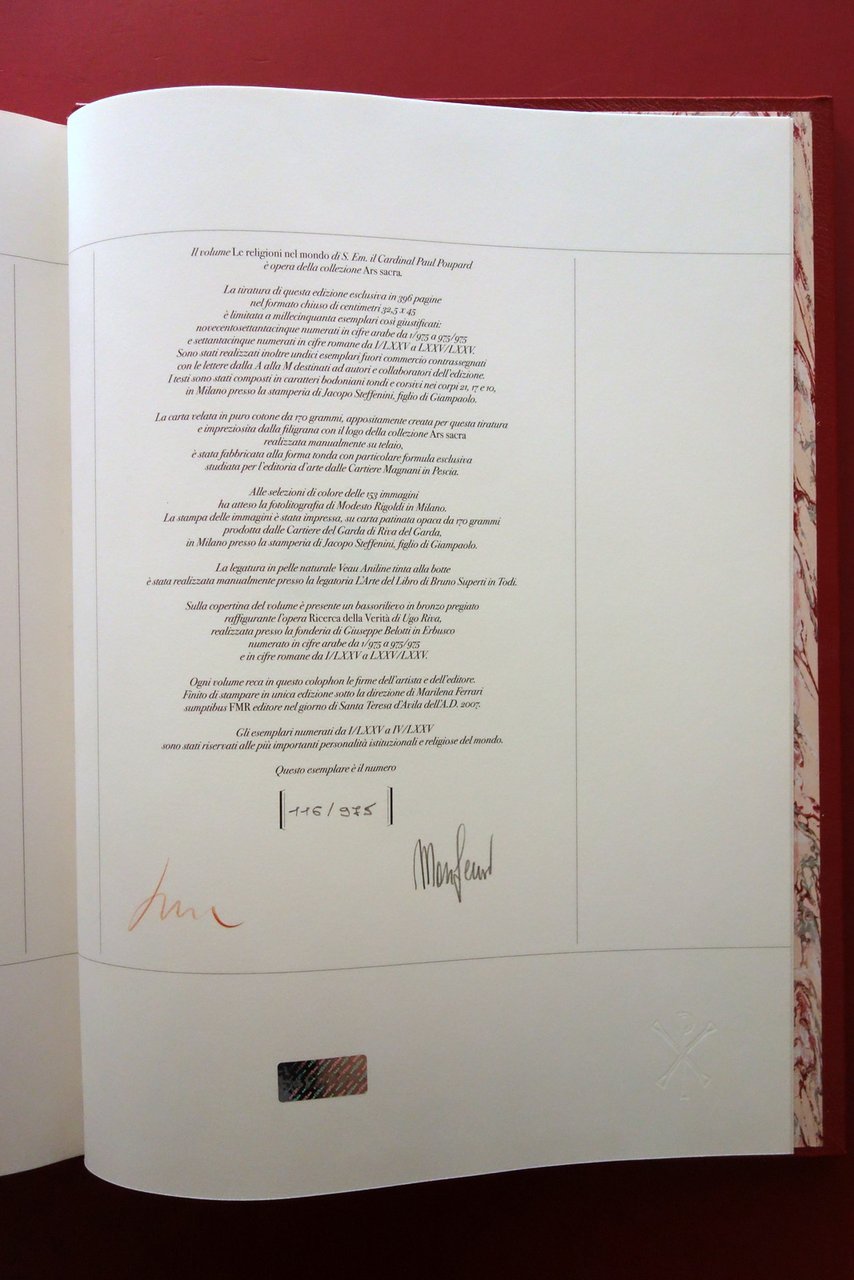 Il volume Le religioni nel mondo di S. Em. il Cardinal Paul Poupard
è opera della collezione Ars sacra.
La tiratura di questa edizione esclusiva in 396 pagine
nel formato chiuso di centimetri 32,5 x 45
è limitata a millecinquanta esemplari così giustificati:
novecentosettantacinque numerati in cifre arabe da 1/975 a 975/975
e settantacinque numerati in cifre romane da I/LXXV a LXXV/LXXV.
Sono stati realizzati inoltre undici esemplari fuori commercio contrassegnati
con le lettere dalla A alla M destinati ad autori e collaboratori dell'edizione.
I testi sono stati composti in caratteri bodoniani tondi e corsivi nei corpi 21, 17 e 10,
in Milano presso la stamperia di Jacopo Steffenini, figlio di Giampaolo.
La carta velata in puro cotone da 170 grammi, appositamente creata per questa tiratura
e impreziosita dalla filigrana con il logo della collezione Ars sacra
realizzata manualmente su telaio,
è stata fabbricata alla forma tonda con particolare formula esclusiva
studiata per l'editoria d'arte dalle Cartiere Magnani in Pescia.
Alle selezioni di colore delle 153 immagini
ha atteso la fotolitografia di Modesto Rigoldi in Milano.
La stampa delle immagini è stata impressa, su carta patinata opaca da 170 grammi
prodotta dalle Cartiere del Garda di Riva del Garda,
in Milano presso la stamperia di Jacopo Steffenini, figlio di Giampaolo.
La legatura in pelle naturale Veau Aniline tinta alla botte
è stata realizzata manualmente presso la legatoria L'Arte del Libro di Bruno Superti in Todi.
Sulla copertina del volume è presente un bassorilievo in bronzo pregiato
raffigurante l'opera Ricerca della Verità di Ugo Riva,
realizzata presso la fonderia di Giuseppe Belotti in Erbusco
numerato in cifre arabe da 1/975 a 975/975
e in cifre romane da I/LXXV a LXXV/LXXV.
Ogni volume reca in questo colophon le firme dell'artista e dell'editore.
Finito di stampare in unica edizione sotto la direzione di Marilena Ferrari
sumptibus FMR editore nel giorno di Santa Teresa d'Avila dell'A.D. 2007.
Gli esemplari numerati da I/LXXV a IV/LXXV
sono stati riservati alle più importanti personalità istituzionali e religiose del mondo.
Questo esemplare è il numero
116/975